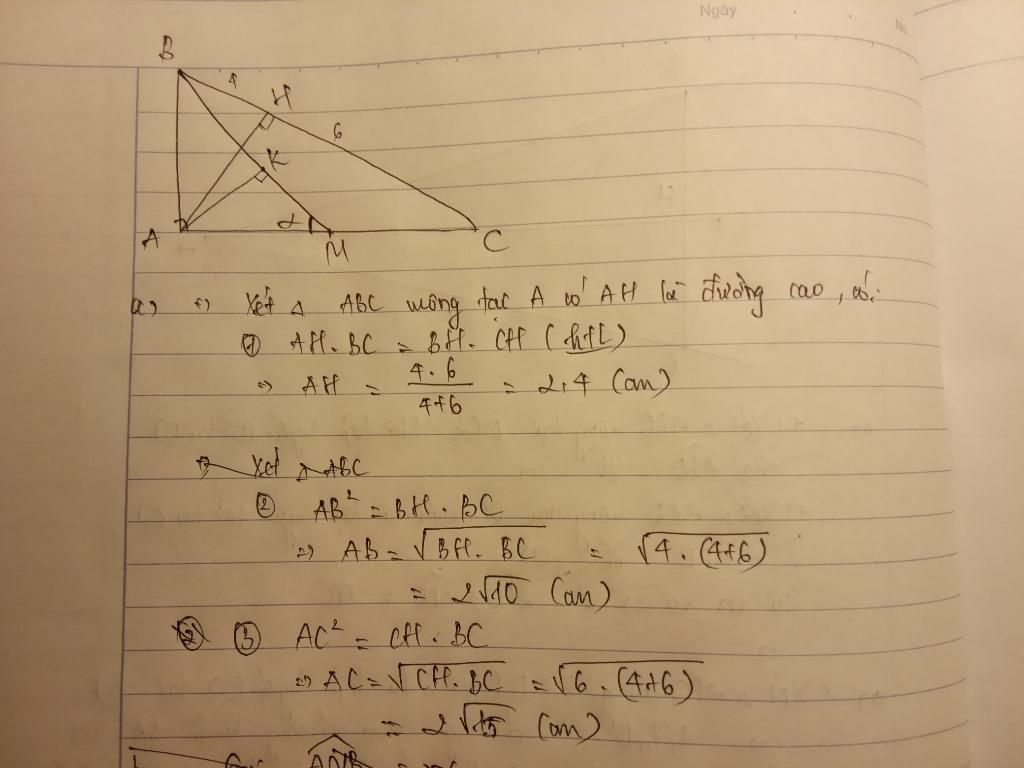 Ngày
No.
B
4
H
6
K
A
α
M
C
a) +) Xét Δ ABC vuông tại A có AH là đường cao, có:
① AH . BC = BH . CH (htl)
=> AH = 4.6 / 4+6 = 2,4 (cm)
=> Xét Δ ABC
② AB² = BH . BC
=> AB = √BH . BC = √4 . (4+6)
= 2√10 (cm)
② ③ AC² = CH . BC
=> AC = √CH . BC = √6 . (4+6)
= 2√15 (cm)